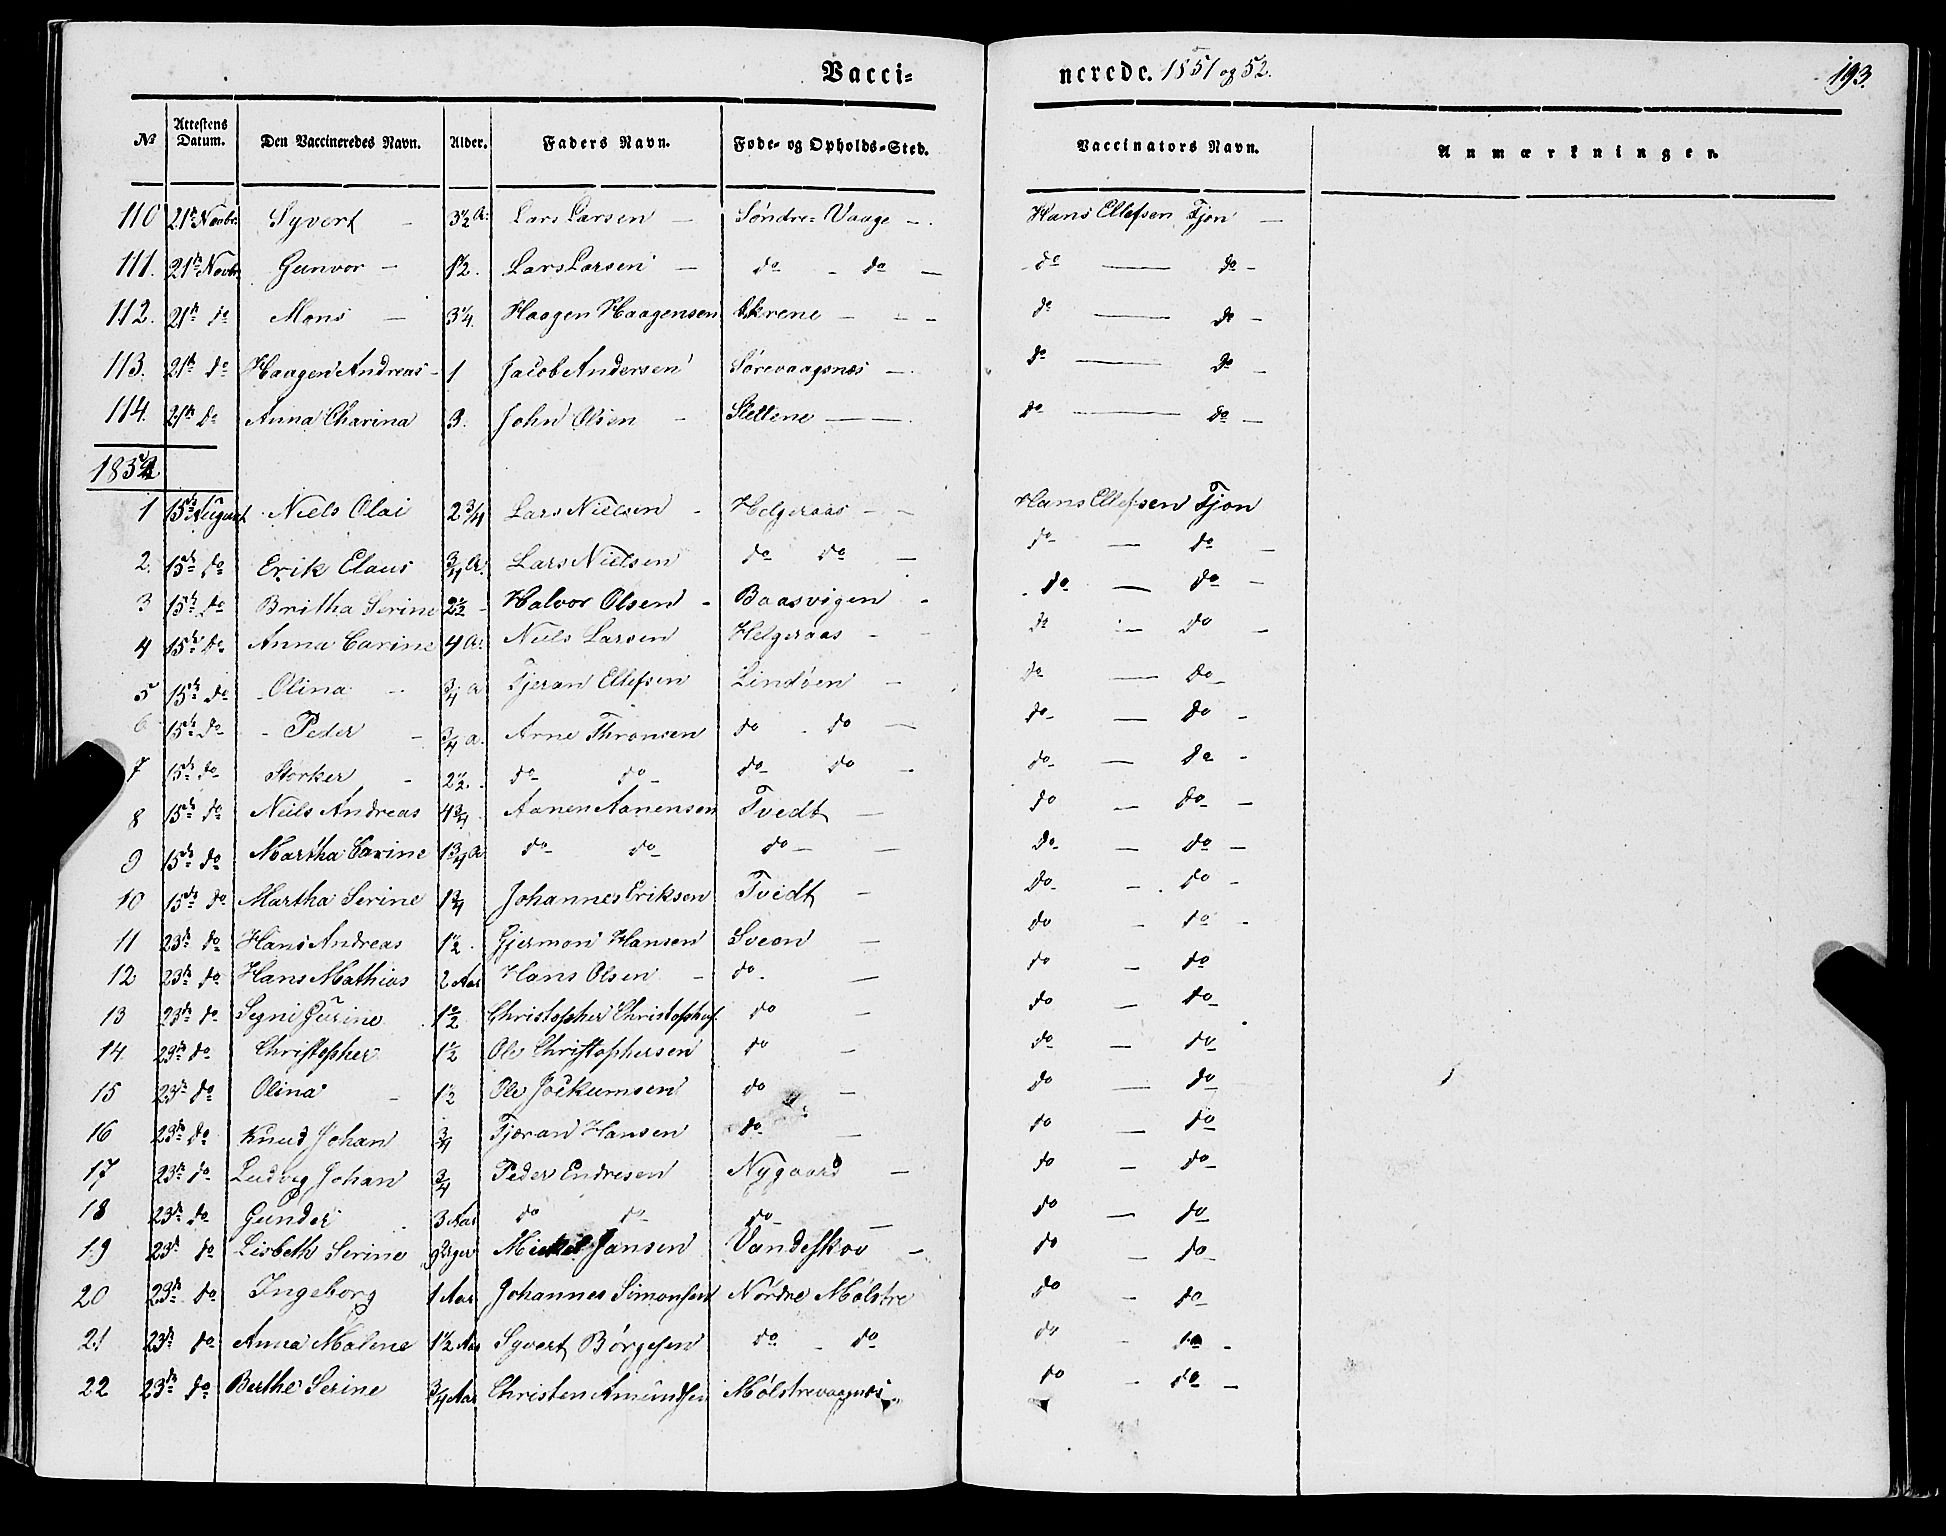 Vacci=nerede. 1851 og 52. 193.
№ Attestens Datum. Den Vaccineredes Navn. Alder. Faders Navn. Føde= og Opholds=Sted. Vaccinators Navn. Anmærkninger.
110 21de Novbr. Syvert – 3½ A. Lars Larsen – Søndre=Vaage – Hans Ellefsen Tjøn –
111. 21de Novbr Gunvor – 1½. Lars Larsen – do – do – do — do –
112. 21de do Mons – 3¼. Haagen Haagensen Ekrene – – – do — do –
113. 21de do Haagen Andreas – 1 Jacob Andersen Sørevaagsnæs – do — do –
114. 21de do Anna Charina 3. John Olsen – Slettene — — do — do –
1852
1 15de August Niels Olai 2¾ Lars Nielsen – Helgeraas – – Hans Ellefsen Tjøn
2. 15de do Erik Claus ¾ A. Lars Nielsen do do – do – do –
3 15de do Britha Serine 2½ – Halvor Olsen – Baasvigen – do – do –
4 15de do Anna Carine 4 A. Niels Larsen Helgeraas – – do – do –
5 15de do Olina – ¾ A Tjeran Ellefsen Lindøen – do — do –
6 15de do – Peder – ¾ A. Arne Thronsen do – do – do – do –
7 15de do Storker – 2½. do – do – do – do – do – do –
8 15de do Niels Andreas 4¾ Aanen Aanensen Tvedt – do – do –
9 15de do Martha Carine 1¾ A do – do – do – – do – do –
10 15de do Martha Serine 1¾ Johannes Eriksen Tvedt – do – do –
11 23de do Hans Andreas 1½. Gjermon Hansen Sveen – do – do –
12 23de do Hans Mathias 2 Aar Hans Olsen – do. – do – do
13 23de do Segni Gurine 1½ Christopher Christophs. do – do – do
14. 23de do Christopher 1½ Ole Christophersen do – do – do
15 23de do Olina – 1½ Ole Jockumsen do – do – do
16 23de do Knud Johan ¾ Tjøran Hansen do – do – do
17 23de do Ludvig Johan ¾ Peder Endresen Nygaard – do – do
18 23de do Gunder 3 Aar do do do – do – do
19 23de do Lisbeth Serine Jansen Vandeskov – do – do
20 23de do Ingeborg 1 Aar Johannes Simonsen Nordre Mølstre do – do
21 23de do Anna Malene 1½ Aar Syvert Børgesen do – do do – do –
22 23de do Berthe Serine ¾ Aar Christen Amundsen Mølstrevaagnæs do – do –